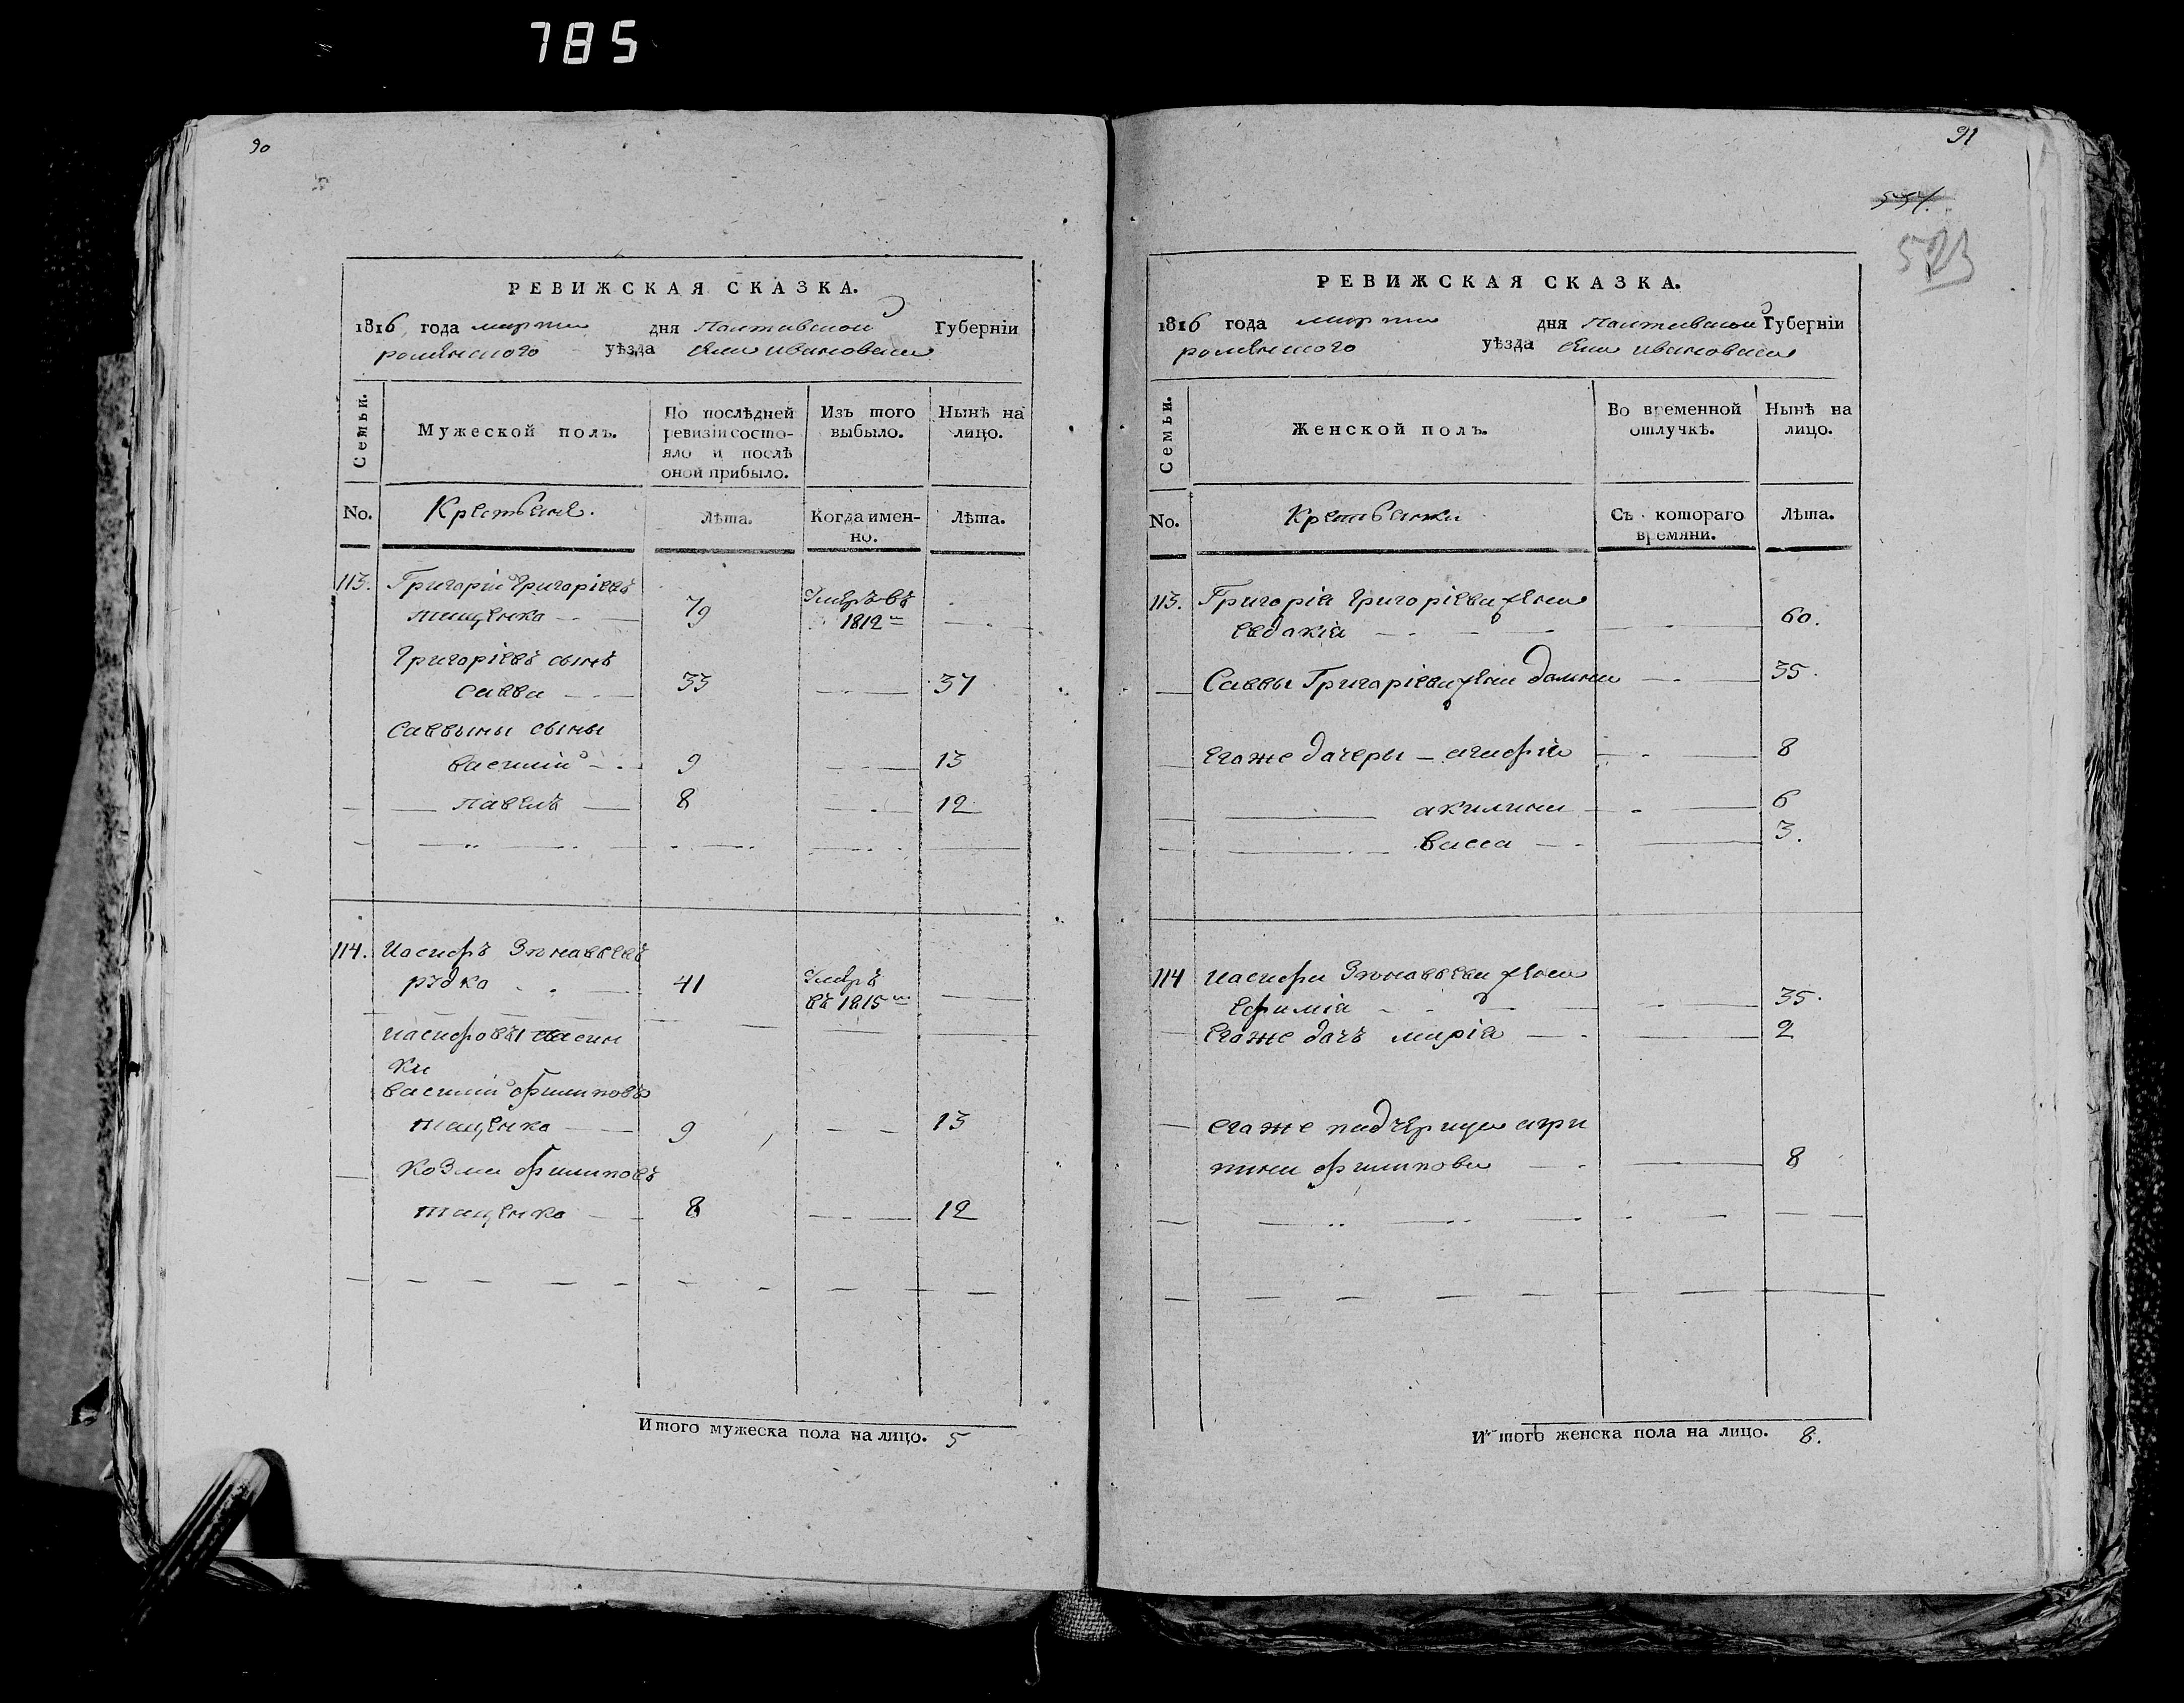 785
90
РЕВИЖСКАЯ СКАЗКА.
1816 года марта дня Полтавской Губерніи
роменского уѣзда села ивановки
Семьи.
Мужеской полъ.
По послѣдней ревизіи состо-
яло и послѣ
оной прибыло.
Изъ того
выбыло.
Нынѣ на
лицо.
No.
Крестьяне.
Лѣта.
Когда имен-
но.
Лѣта.
113. Григорій Григоріевъ
тищенко 79 умеръ въ 1812м
Григоріевъ сынъ
савва 33 37
саввины сыны
василій 9 13
павелъ 8 12
114. Иосифъ Зѣновьевъ
рѣдко 41 умеръ въ 1815м
иосифовы пасин
ки
василій филиповъ
тищенко 9 13
козма филиповъ
тищенко 8 12
Итого мужеска пола на лицо. 5
91
554.
523
РЕВИЖСКАЯ СКАЗКА.
1816 года марта дня Полтавской Губерніи
роменского уѣзда села ивановки
Семьи.
Женской полъ.
Во временной
отлучкѣ.
Нынѣ на
лицо.
No.
Крестьянки
Съ котораго
времяни.
Лѣта.
113. Григорія Григоріева жена
евдокія 60.
Саввы Григоріева жена домна 35.
Его же дочеры агафія 8
акилина 6
васса 3.
114 иосифа Зѣновьева жена
ефимія 35.
Его же дочъ марія 2
его же падчерица агри
пина филипова 8
Итого женска пола на лицо. 8.